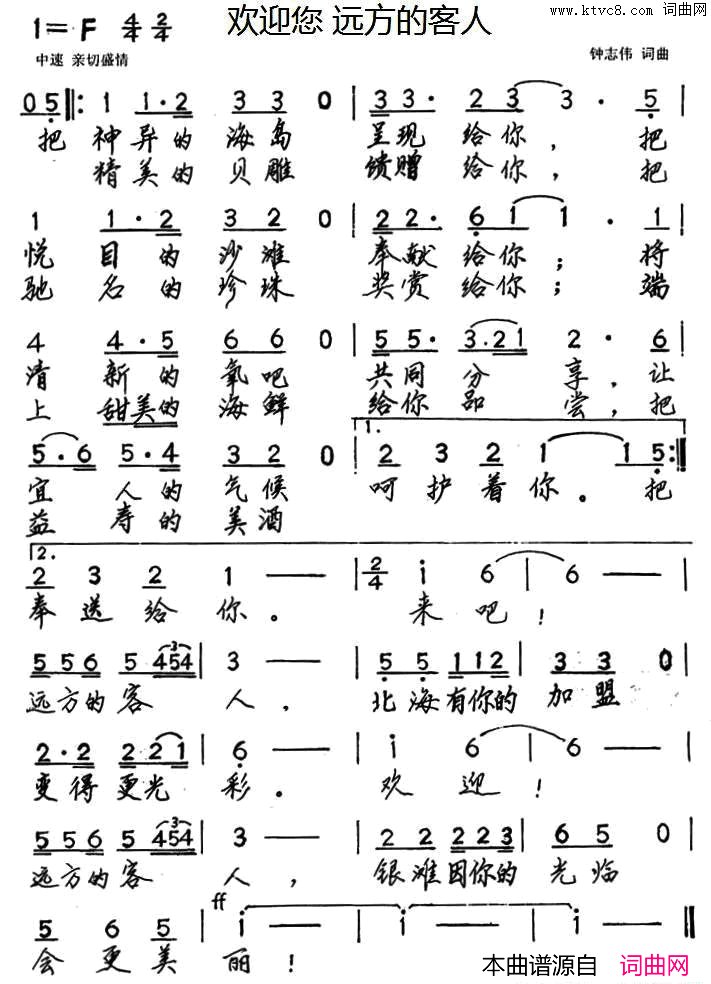 欢迎您 远方的客人
www.ktvc8.com 词曲网
1=F 4/4 2/4
中速 亲切盛情
钟志伟 词曲
05‖: 1 1·2 3 3 0 | 3 3· 2 3 3· 5 |
把 神异的 海岛 呈现 给你， 把
精美的 贝雕 馈赠 给你， 把
1 1·2 3 2 0 | 2 2· 6 1 1· 1 |
悦 目 的 沙滩 奉献 给你； 将
驰 名 的 珍珠 奖赏 给你； 端
4 4·5 6 6 0 | 5 5· 3.21 2· 6 |
清 新 的 氧吧 共同 分 享， 让
上 甜美的 海鲜 给你 品 尝， 把
5·6 5·4 3 2 0 | 1. 2 3 2 1 1 5 :‖
宜 人 的 气候 呵 护 着 你。 把
益 寿 的 美酒
2. 2 3 2 1 — — | 2/4 i 6 | 6 — |
奉 送 给 你。 来 吧！
5 5 6 5 454 | 3 — | 5 5 1 1 2 | 3 3 0 |
远方的客 人， 北海有你的 加盟
2·2 2 2 1 | 6 — | i 6 | 6 — |
变得更光 彩。 欢 迎！
5 5 6 5 454 | 3 — | 2 2 2 2 3 | 6 5 0 |
远方的客 人， 银滩因你的 光临
5 6 5 | ff i — | i — | i — ‖
会 更 美 丽！
本曲谱源自 词曲网